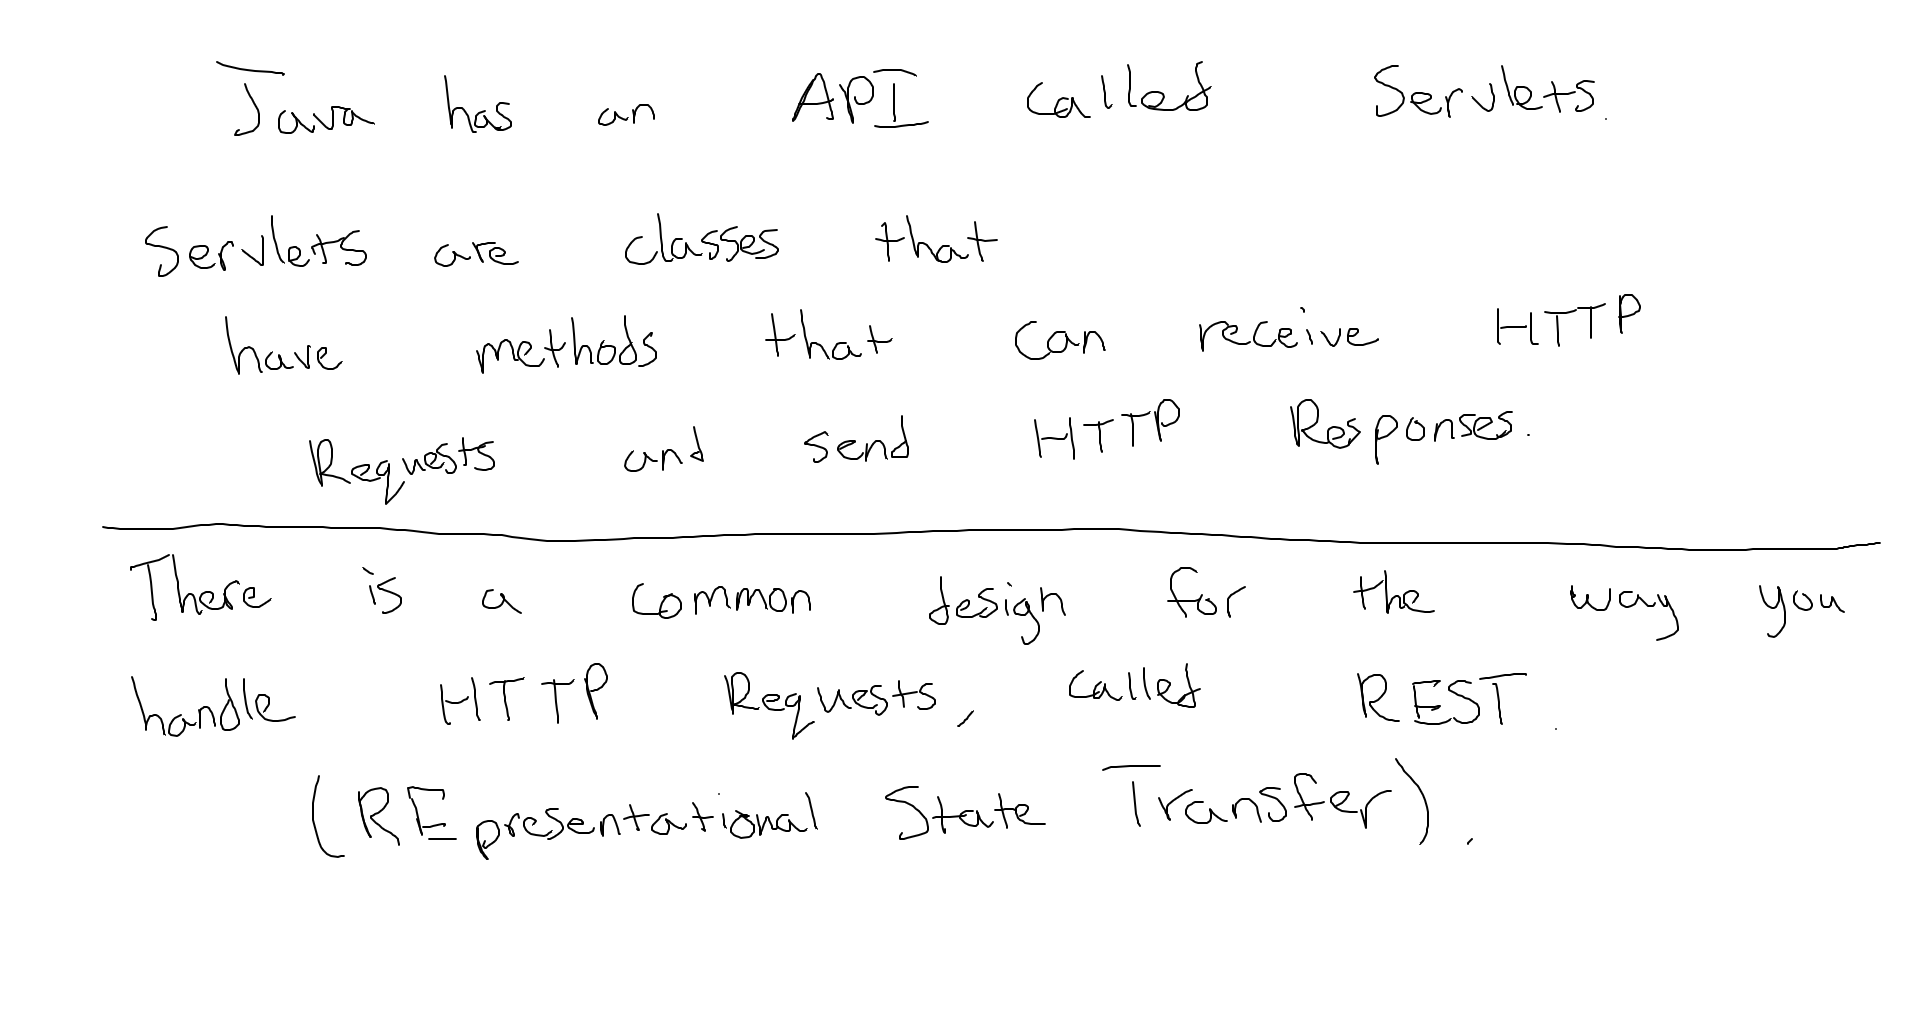 Java has an API called Servlets.
Servlets are classes that
have methods that can receive HTTP
Requests and send HTTP Responses.
There is a common design for the way you
handle HTTP Requests, called REST.
(REpresentational State Transfer).